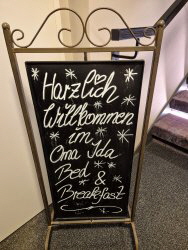 Herzlich
Willkommen
im
Oma Ida
Bed &
Breakfast